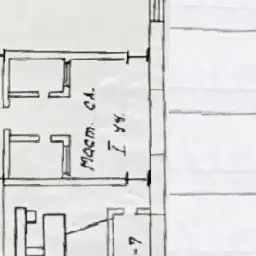 Маст. сл.
I уч.
-7